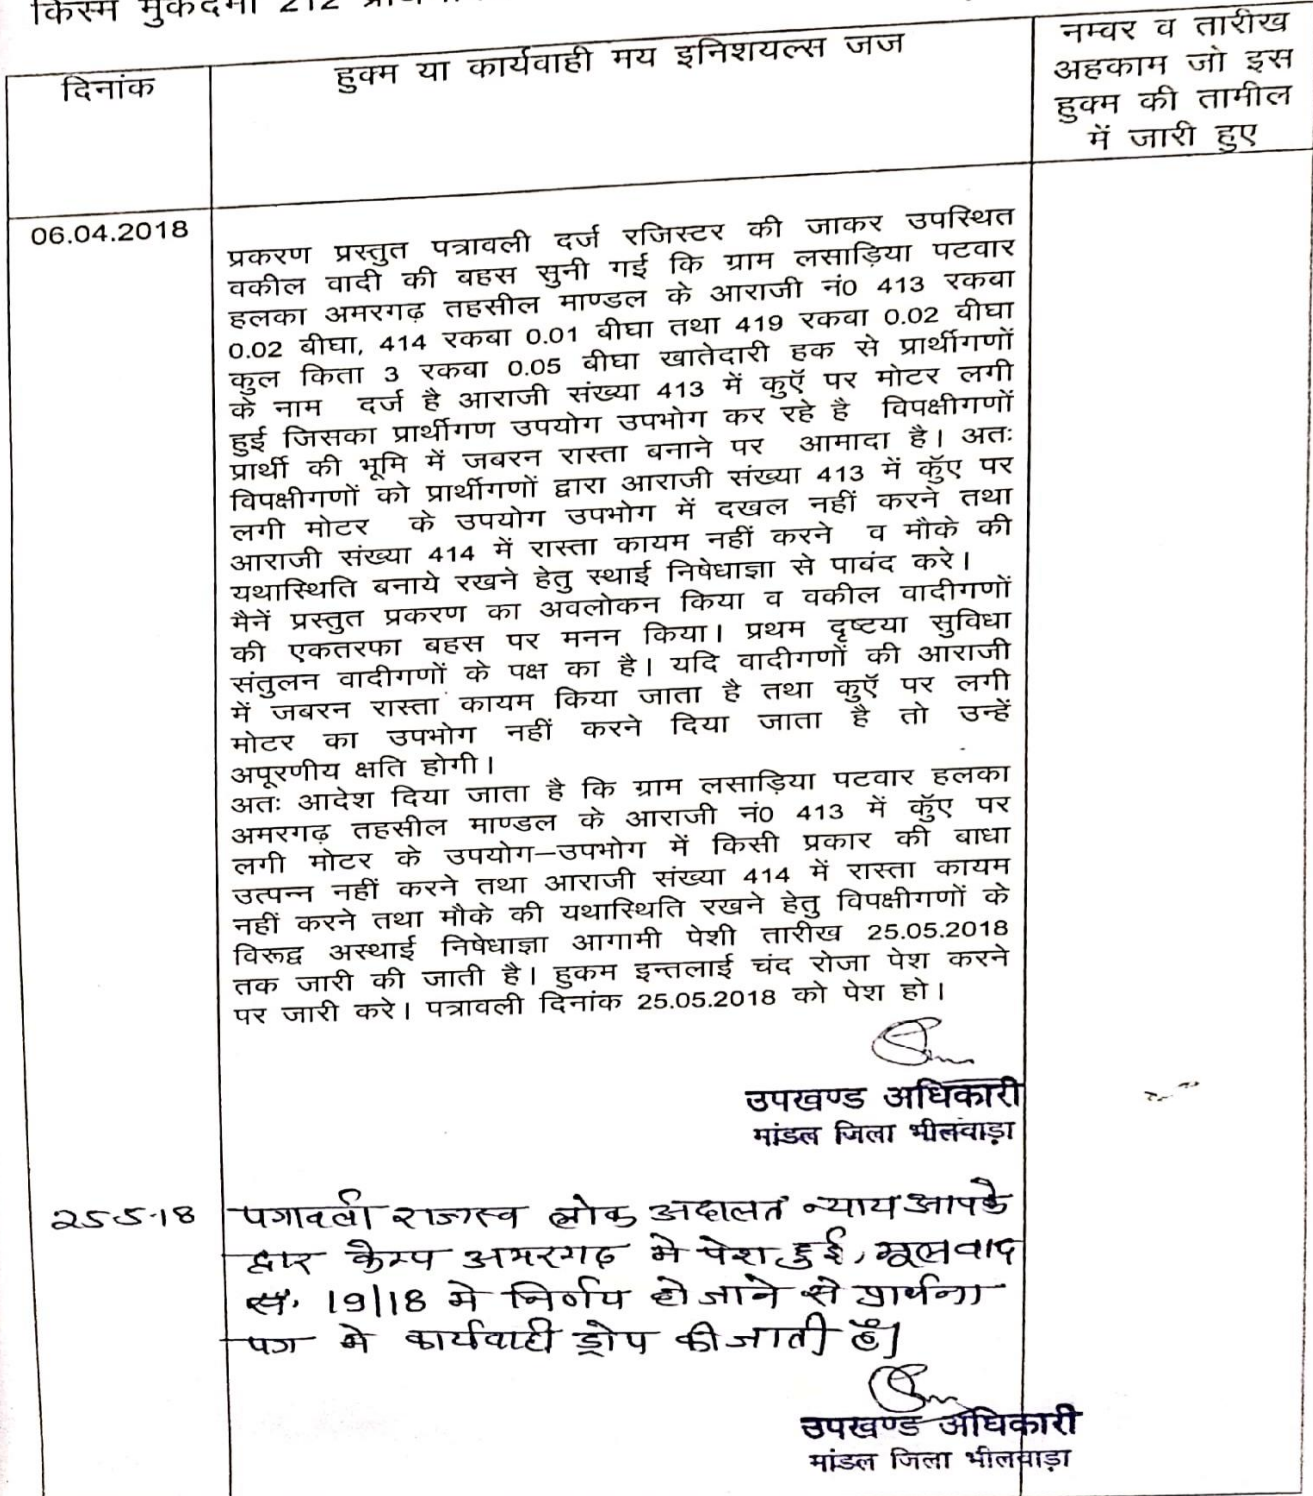 किस्म मुकदमा 212
दिनांक
हुक्म या कार्यवाही मय इनिशयल्स जज
नम्वर व तारीख
अहकाम जो इस
हुक्म की तामील
में जारी हुए
06.04.2018
प्रकरण प्रस्तुत पत्रावली दर्ज रजिस्टर की जाकर उपस्थित
वकील वादी की बहस सुनी गई कि ग्राम लसाड़िया पटवार
हलका अमरगढ़ तहसील माण्डल के आराजी नं0 413 रकबा
0.02 बीघा, 414 रकबा 0.01 बीघा तथा 419 रकबा 0.02 बीघा
कुल किता 3 रकबा 0.05 बीघा खातेदारी हक से प्रार्थीगणों
के नाम दर्ज है आराजी संख्या 413 में कुऍ पर मोटर लगी
हुई जिसका प्रार्थीगण उपयोग उपभोग कर रहे है विपक्षीगणों
प्रार्थी की भूमि में जबरन रास्ता बनाने पर आमादा है। अतः
विपक्षीगणों को प्रार्थीगणों द्वारा आराजी संख्या 413 में कुॅए पर
लगी मोटर के उपयोग उपभोग में दखल नहीं करने तथा
आराजी संख्या 414 में रास्ता कायम नहीं करने व मौके की
यथास्थिति बनाये रखने हेतु स्थाई निषेधाज्ञा से पाबंद करे।
मैनें प्रस्तुत प्रकरण का अवलोकन किया व वकील वादीगणों
की एकतरफा बहस पर मनन किया। प्रथम दृष्टया सुविधा
संतुलन वादीगणों के पक्ष का है। यदि वादीगणों की आराजी
में जबरन रास्ता कायम किया जाता है तथा कुऍ पर लगी
मोटर का उपभोग नहीं करने दिया जाता है तो उन्हें
अपूरणीय क्षति होगी।
अतः आदेश दिया जाता है कि ग्राम लसाड़िया पटवार हलका
अमरगढ़ तहसील माण्डल के आराजी नं0 413 में कुॅए पर
लगी मोटर के उपयोग–उपभोग में किसी प्रकार की बाधा
उत्पन्न नहीं करने तथा आराजी संख्या 414 में रास्ता कायम
नहीं करने तथा मौके की यथास्थिति रखने हेतु विपक्षीगणों के
विरूद्व अस्थाई निषेधाज्ञा आगामी पेशी तारीख 25.05.2018
तक जारी की जाती है। हुकम इन्तलाई चंद रोजा पेश करने
पर जारी करे। पत्रावली दिनांक 25.05.2018 को पेश हो।
उपखण्ड अधिकारी
मांडल जिला भीलवाड़ा
25-5-18
पत्रावली राजस्व लोक अदालत न्याय आपके
द्वार कैम्प अमरगढ़ मे पेश हुई, मूलवाद
स. 19/18 मे निर्णय हो जाने से प्रार्थना
पत्र मे कार्यवाही ड्रोप की जाती है।
उपखण्ड अधिकारी
मांडल जिला भीलवाड़ा